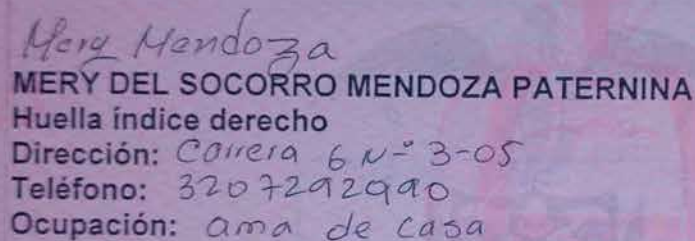 Mery Mendoza
MERY DEL SOCORRO MENDOZA PATERNINA
Huella índice derecho
Dirección: Carrera 6 Nº 3-05
Teléfono: 3207292990
Ocupación: ama de casa